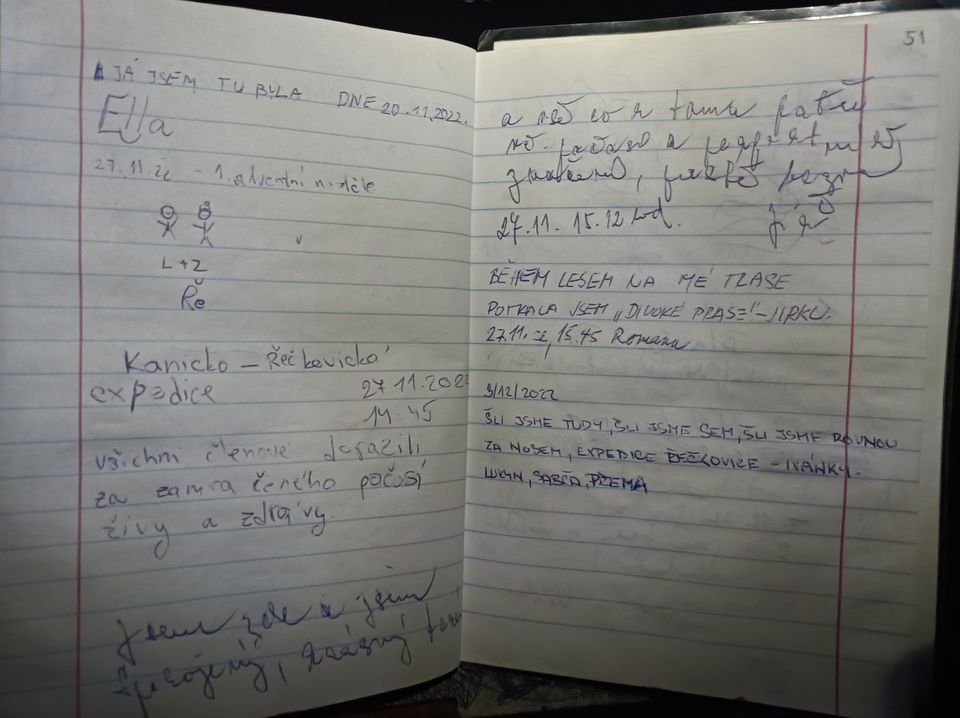 JÁ JSEM TU BYLA DNE 20.11.2022.
Ella
27.11.22 - 1. adventní neděle
L + Z
Ře
Kanicko - Řečkovické
expedice 27.11.2022
14.45
všichni členové dorazili
za zamračeného počasí
živy a zdrávy.
Jsem zde a jsem
spokojený, krásný
51
a vše co k tomu patří
27.11. 15.12 hod.
BĚHEM LESEM NA MÉ TRASE
POTKALA JSEM „DIVOKÉ PRASE" - JIRKU.
27.11.22, 15.45 Romana
3/12/2022
ŠLI JSME TUDY, ŠLI JSME SEM, ŠLI JSME ROVNOU
ZA NOSEM, EXPEDICE ŘEČKOVICE - IVÁNKY.